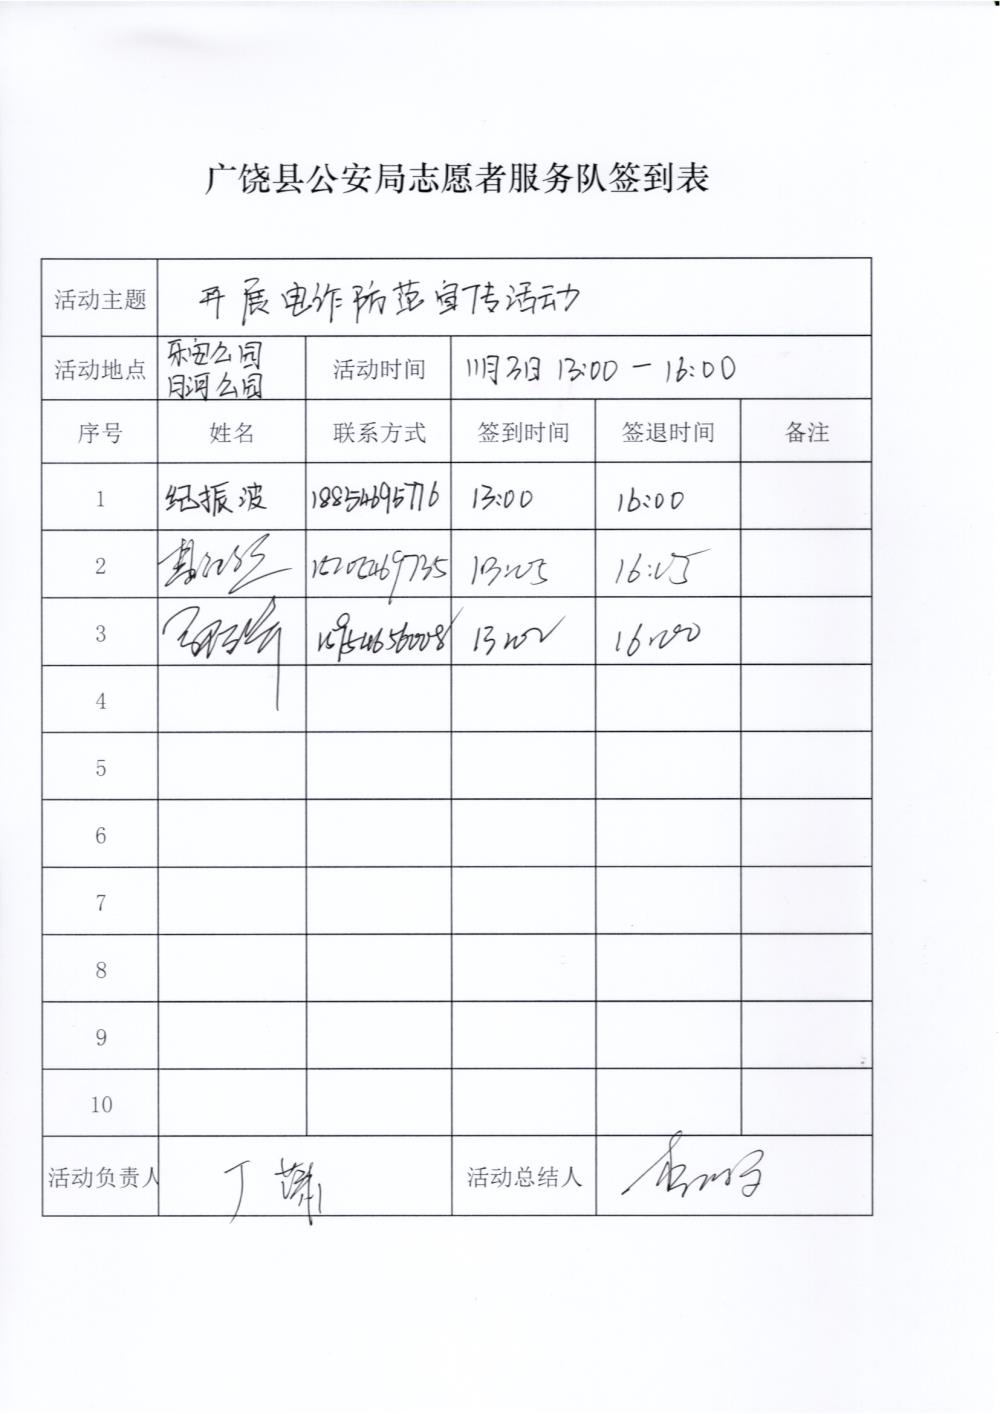 广饶县公安局志愿者服务队签到表
活动主题 开展电诈防范宣传活动
活动地点 乐安公园 月河公园 活动时间 11月3日 13:00-16:00
序号 姓名 联系方式 签到时间 签退时间 备注
1 纪振波 18854695776 13:00 16:00
2 13:05 16:05
3 13:00 16:00
4
5
6
7
8
9
10
活动负责人 丁 活动总结人